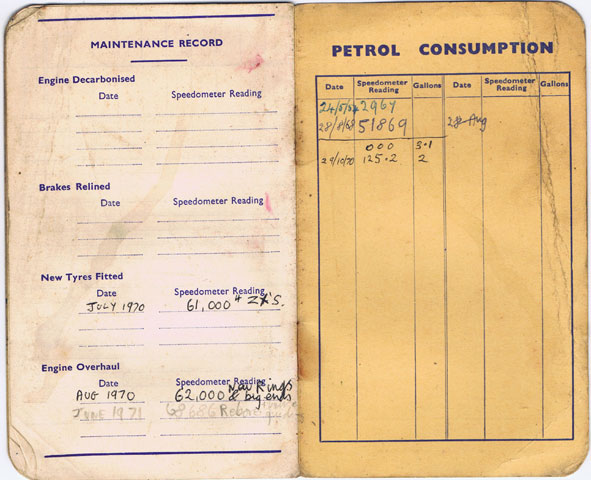 MAINTENANCE RECORD
Engine Decarbonised
Date Speedometer Reading
Brakes Relined
Date Speedometer Reading
New Tyres Fitted
Date Speedometer Reading
JULY 1970 61,000 4 ZX'S.
Engine Overhaul
Date Speedometer Reading
AUG 1970 62,000 New Rings
& big ends
JUNE 1971 68686
PETROL CONSUMPTION
Date Speedometer Reading Gallons Date Speedometer Reading Gallons
2967
28/8/68 51869 28 Aug
000 3.1
29/10/70 125.2 2